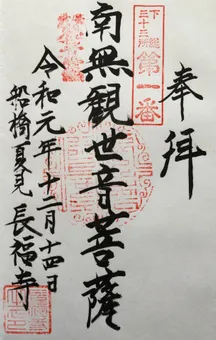 奉拝
下総三十三所
第一番
南無観世音菩薩
令和元年十二月十四日
船橋夏見 長福寺